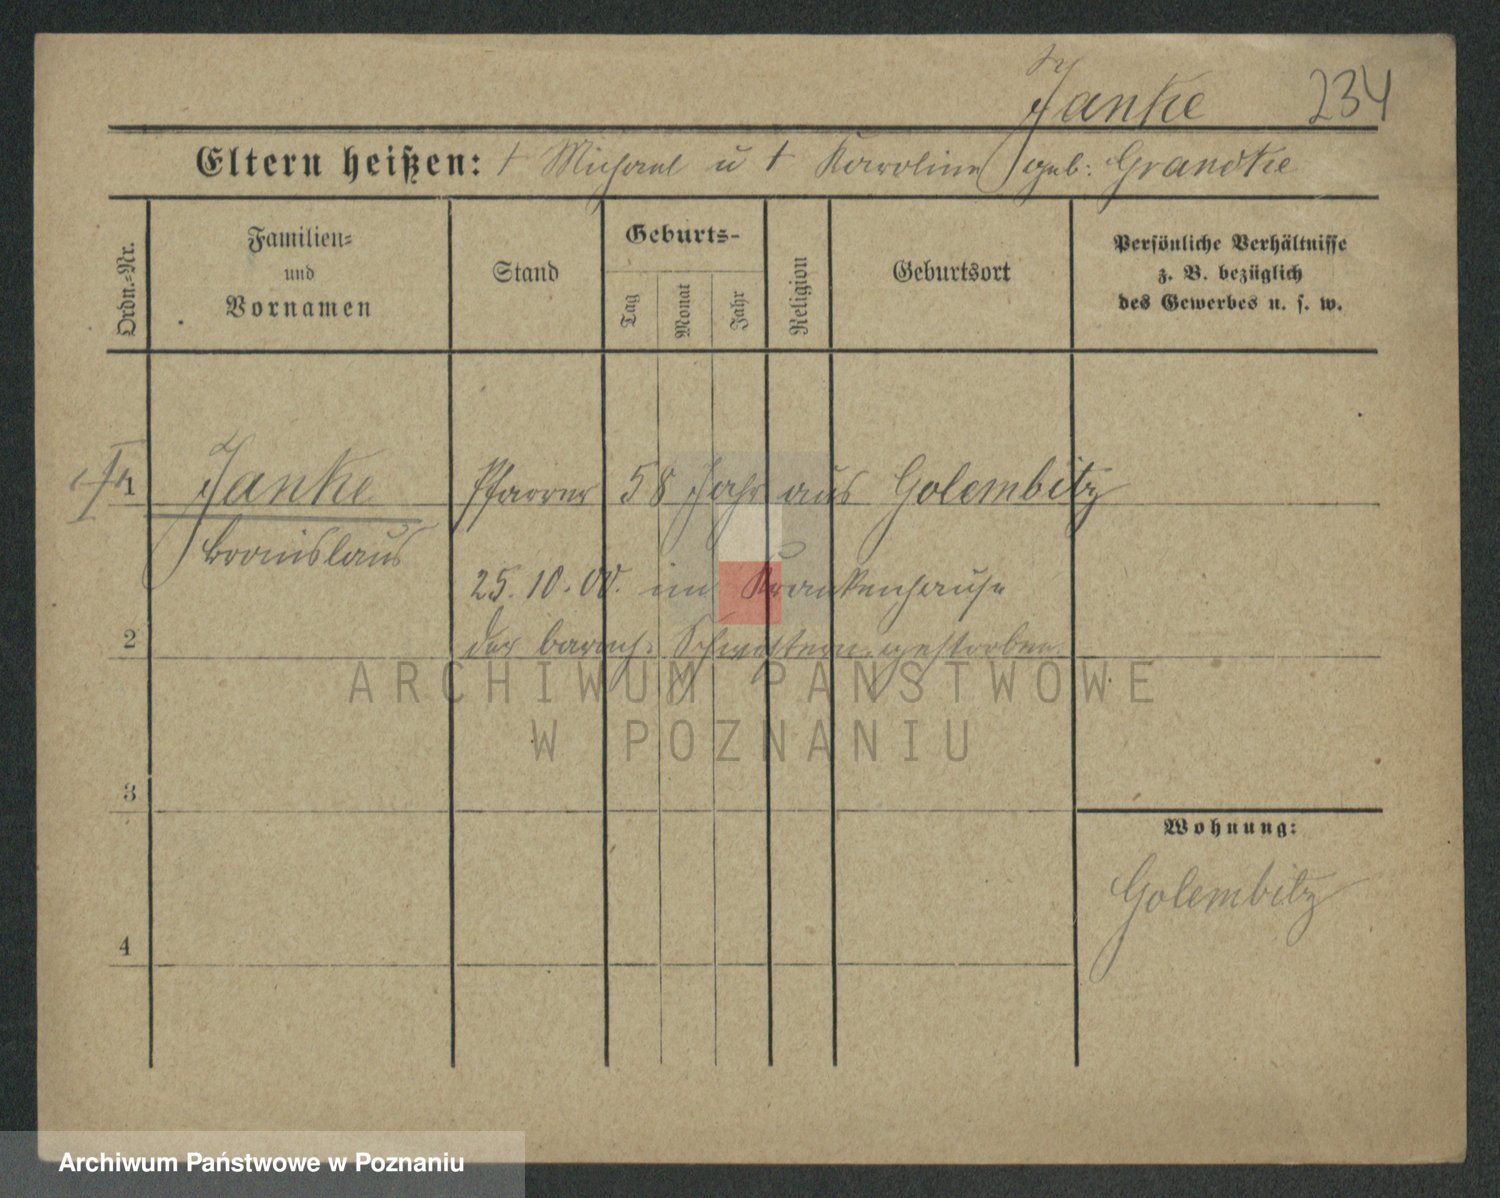 Janke 234
Eltern heißen: † Michael u † Karoline geb: Grandke
Ordn.-Nr.
Familien-
und
Vornamen
Stand
Geburts-
Tag
Monat
Jahr
Religion
Geburtsort
Persönliche Verhältnisse
z. B. bezüglich
des Gewerbes u. s. w.
† 1 Janke Pfarrer 58 Jahr aus Golembitz
Bronislaus
25.10.00. im Krankenhause
2 der barmh: Schwestern gestorben.
ARCHIWUM PAŃSTWOWE
W POZNANIU
3
Wohnung:
Golembitz
4
Archiwum Państwowe w Poznaniu